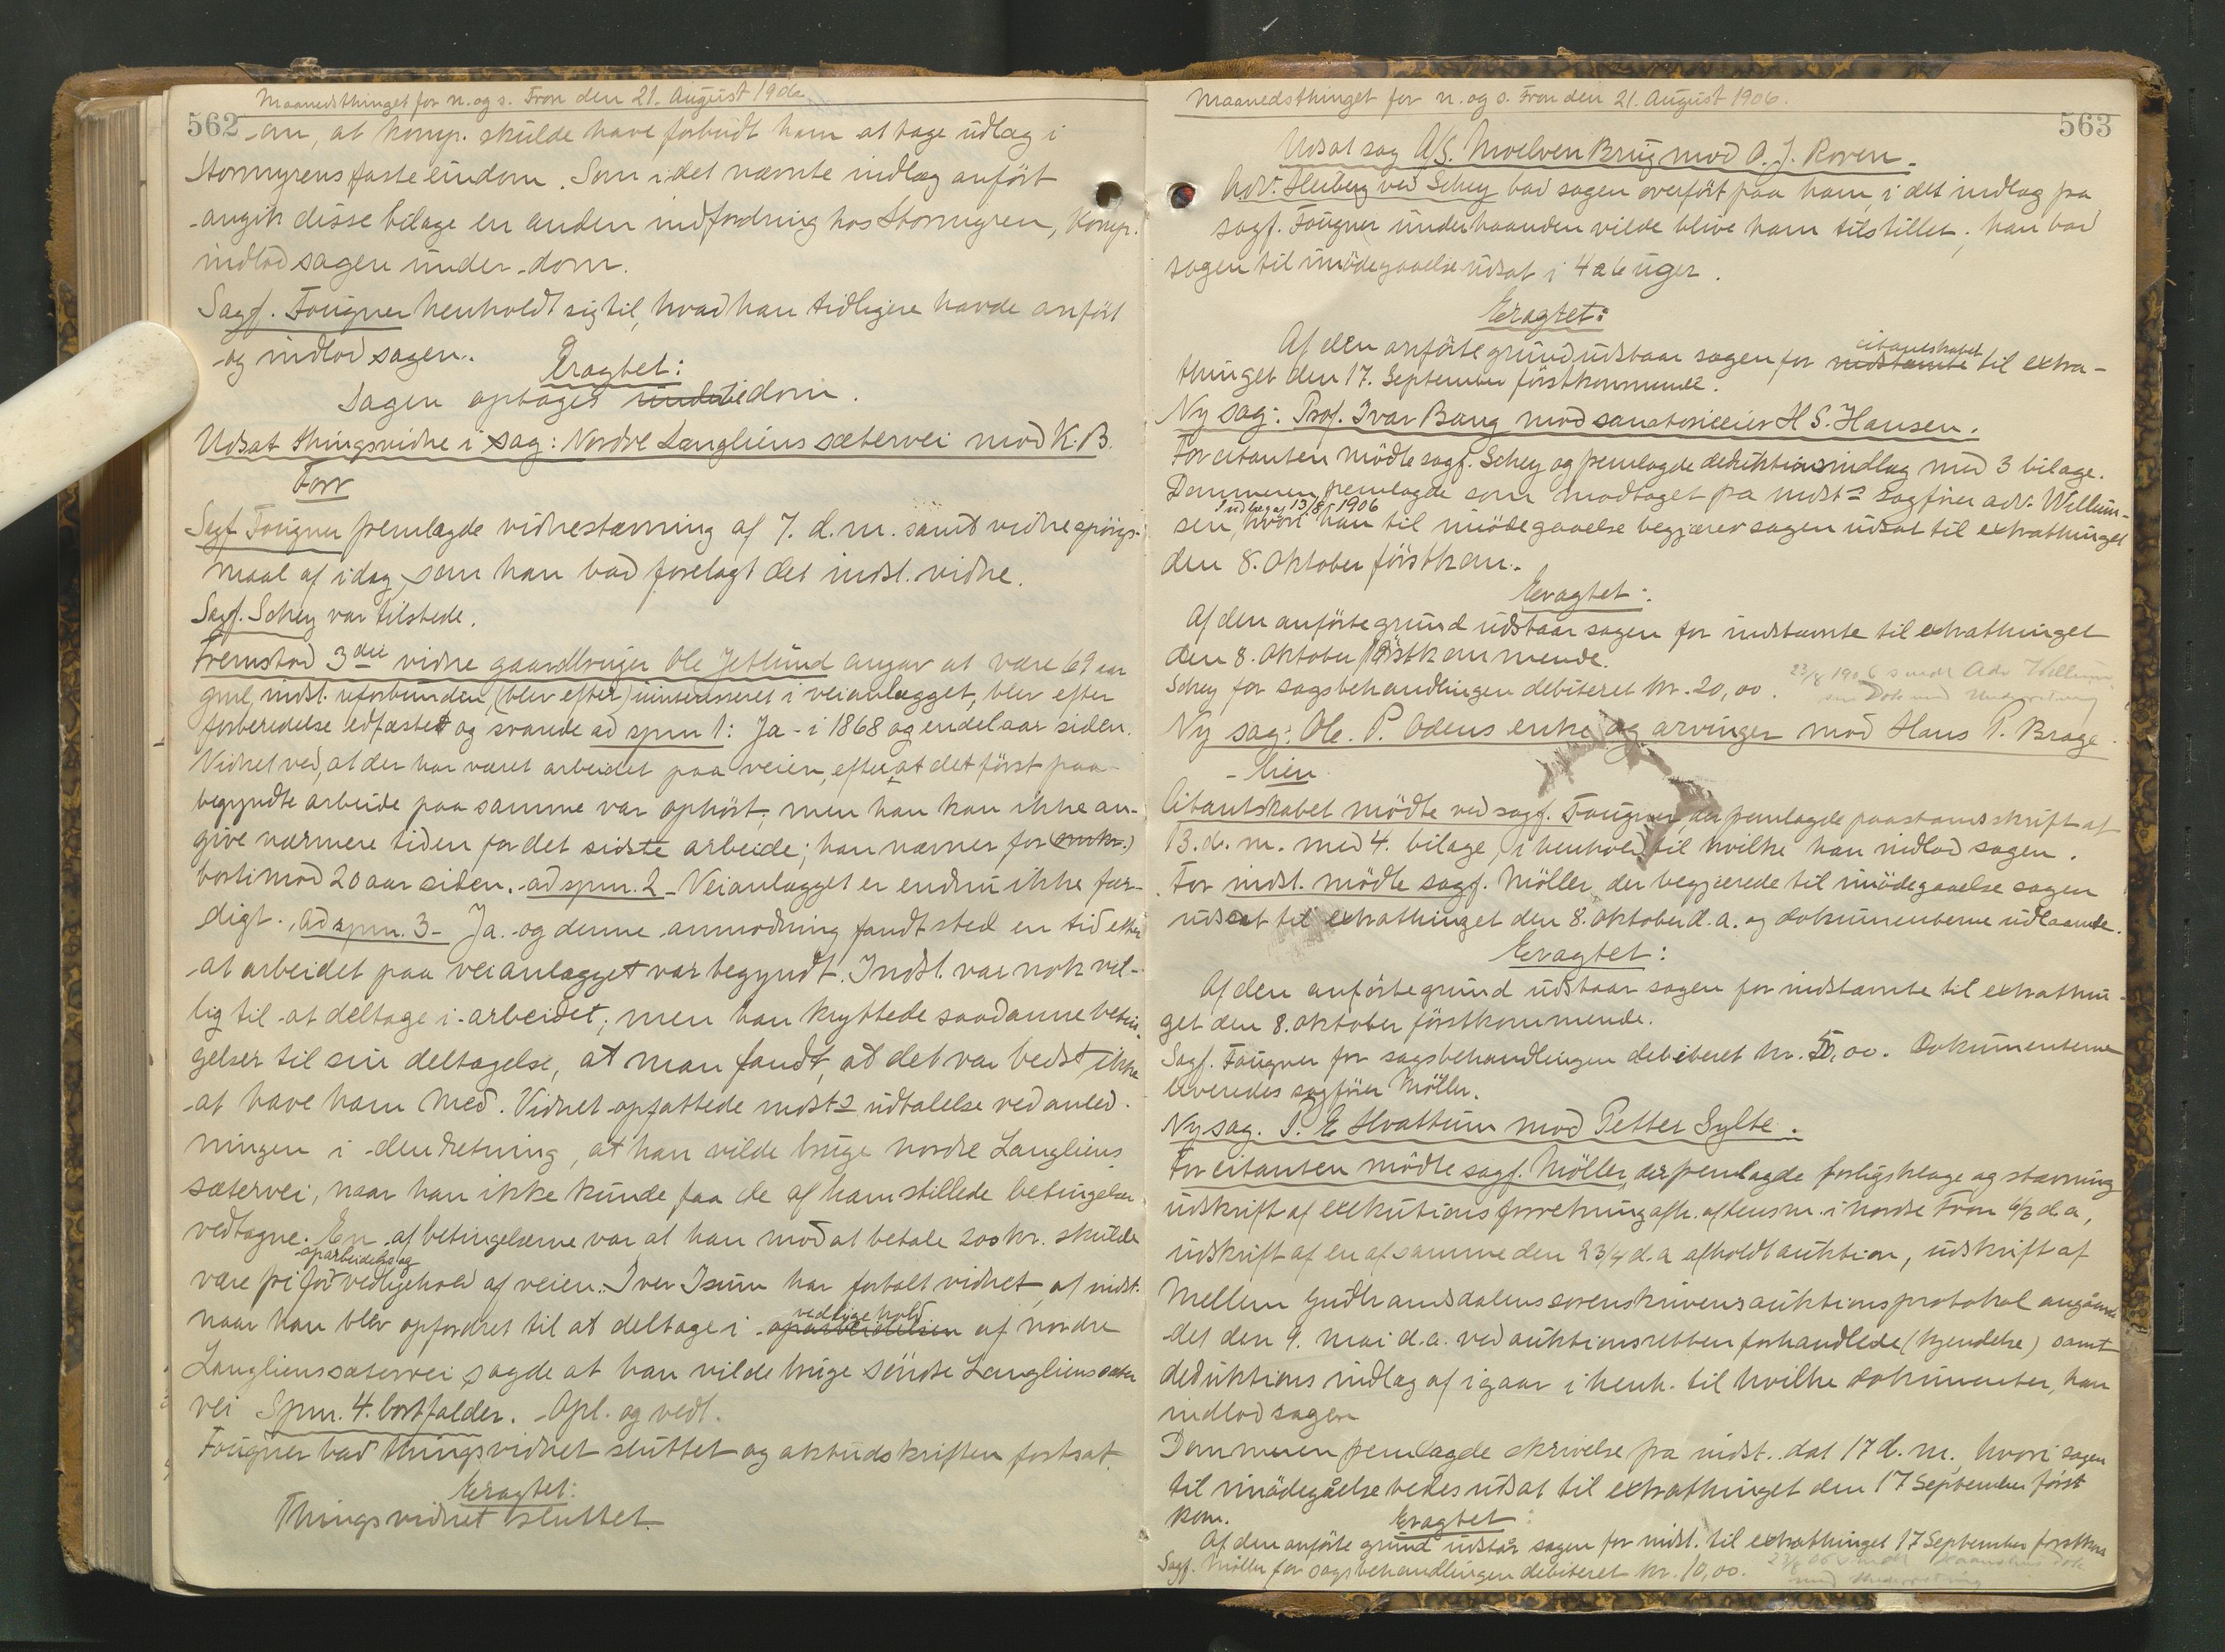 Maanedsthinget for n. og s. Fron den 21. August 1906.
562
-an, at komp. skulde have forbudt ham at tage udlæg i
Stormyrens faste eiendom. Som i det nævnte indlæg anfört
angik disse bilage en anden indfordring hos Stormyren, komp.
indlod sagen under dom.
Sagf. Fougner henholdt sig til, hvad han tidligere havde anfört
og indlod sagen.
Eragtet:
Sagen optages under til dom.
Udsat thingsvidne i sag: Nordre Langliens sætervei mod K. B.
Forr
Sagf. Fougner fremlagde vidnestævning af 7. d.m. samt vidnespörgs-
maal af idag, som han bad forelagt det indst. vidne.
Sagf. Schey var tilstede.
Fremstod 3die vidne gaardbruger Ole Jetlund angav at være 69 aar
gml, indst. uforbunden, (blev efter) uinteresseret i veianlægget, blev efter
forberedelse edfæstet og svarede ad spm 1: Ja - i 1868 og endel aar siden.
Vidnet ved, at der har været arbeidet paa veien, efter at det först paa-
begyndte arbeide paa samme var ophört; men han kan ikke an-
give nærmere tiden for det sidste arbeide; han nævner for (omkr.)
bortimod 20 aar siden. ad spm. 2 - Veianlægget er endnu ikke fær-
digt. ad spm. 3 - Ja. og denne anmodning fandt sted en tid efter
at arbeidet paa veianlægget var begyndt. Indst. var nok vil-
lig til at deltage i arbeidet; men han knyttede saadanne betin-
gelser til sin deltagelse, at man fandt, at det var bedst ikke
at have ham med. Vidnet opfattede indst.s udtalelse ved anled-
ningen i den retning, at han vilde bruge nordre Langliens
sætervei, naar han ikke kunde faa de af ham stillede betingelser
vedtagne. En af betingelserne var at han mod at betale 200 kr. skulde
oparbeidelse og
være fri for vedligehold af veien. Iver Isum har fortalt vidnet, at indst.
vedligehold
naar han blev opfordret til at deltage i oparbeidelsen af nordre
Langliens sætervei sagde at han vilde bruge söndre Langliens sæter
vei Spm. 4. bortfalder. Opl. og vedt.
Fougner bad thingsvidnet sluttet og aktudskriften fortsat.
Eragtet:
Thingsvidnet sluttet.
Maanedsthinget for n. og s. Fron den 21. August 1906.
563
Udsat sag A/S. Moelven Brug mod O. J. Roven.
Adv. Heiberg ved Schey bad sagen overfört paa ham, i det indlæg fra
sagf. Fougner underhaanden vilde blive ham tilstillet; han bad
sagen til imödegaaelse udsat i 4 a 6 uger.
Eragtet:
citantskabet
Af den anförte grund udstaar sagen for indstævnte til extra-
thinget den 17. September förstkommende.
Ny sag: Prof. Ivar Bang mod sanatorieeier H S. Hansen.
For citanten mödte sagf. Schey og fremlagde deduktionsindlæg med 3 bilage.
Dommeren fremlagde som modtaget fra indst.s sagförer adv. Willum-
Indlæg af 13/8 1906
sen, hvori han til imödegaaelse begjærer sagen udsat til extrathinget
den 8. Oktober förstkom.
Eragtet:
Af den anförte grund udstaar sagen for indstævnte til extrathinget
den 8. Oktober förstkommende.
Schey for sagsbehandlingen debiteret kr. 20,00. 23/8 1906 sendt Adv Willum-
sen Dok med Underretning
Ny sag: Ole. P. Odens enke og arvinger mod Hans P. Brage
-lien
Citantskabet mödte ved sagf. Fougner, der fremlagde paastandsskrift af
13. d. m. med 4. bilage, i henhold til hvilke han indlod sagen.
For indst. mödte sagf. Möller, der begjærede til imödegaaelse sagen
udsat til extrathinget den 8. Oktober d. a. og dokumenterne udlaante.
Eragtet:
Af den anförte grund udstaar sagen for indstævnte til extrathin-
get den 8. Oktober förstkommende.
Sagf. Fougner for sagsbehandlingen debiteret kr. 50,00. Dokumenterne
leveredes sagförer Möller.
Ny sag. P. E Hvattum mod Petter Sylte.
For citanten mödte sagf. Möller, der fremlagde forligsklage og stævning
udskrift af exekutionsforretning afh. af lensm. i nordre Fron 6/3 d a,
udskrift af en af samme den 23/4 d. a afholdt auktion, udskrift af
Mellem Gudbrandsdalens sorenskriveris auktionsprotokol angaaende
det den 9. mai d. a. ved auktionsretten forhandlede (kjendelse) samt
deduktions indlæg af igaar i henh. til hvilke dokumenter, han
indlod sagen
Dommeren fremlagde skrivelse fra indst. dat 17 d. m., hvori sagen
til imödegåelse bedes udsat til extrathinget den 17 September först
kom.
Eragtet:
Af den anförte grund udstår sagen for indst. til extrathinget 17 September förstkom
Sagf. Möller for sagsbehandlingen debiteret kr. 10,00.
med Underretning